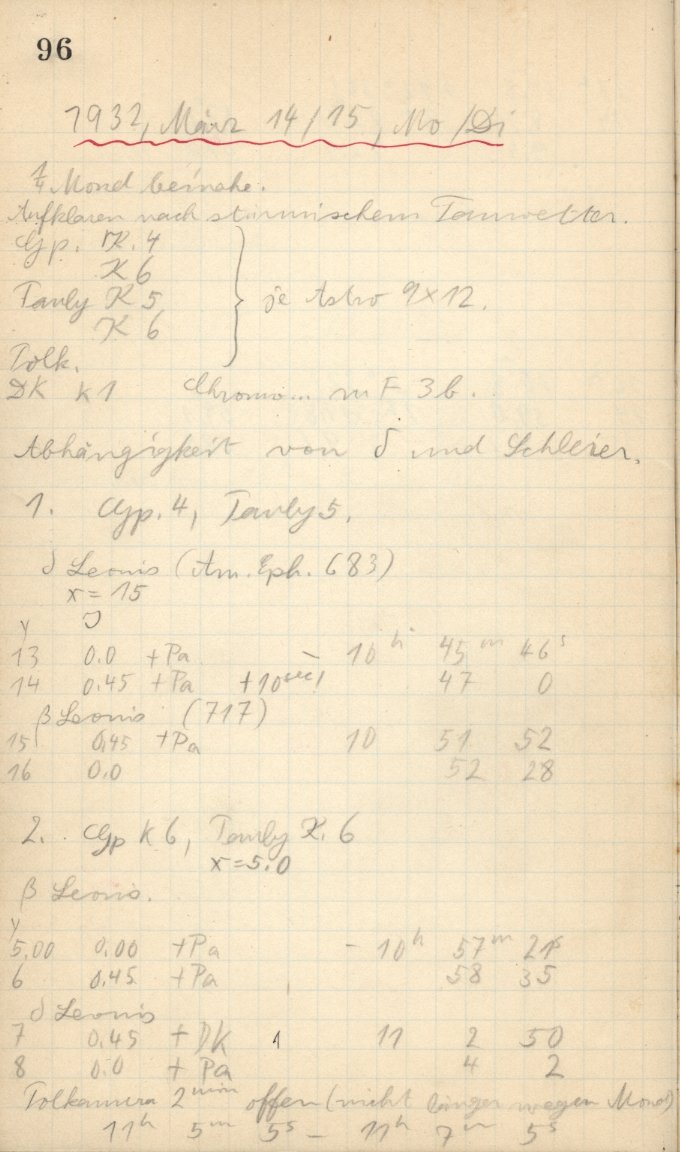 96
1932, März 14/15, Mo/Di
1/4 Mond beinahe.
Aufklaren nach stürmischem Tauwetter.
Gp. K. 4
K 6
Tauby K 5
K 6
} je Astro 9×12.
Polk.
DK K1 Chromo... m F 3b.
Abhängigkeit von δ und Schleier.
1. Gp. 4, Tauby 5.
δ Leonis (Am. Eph. 683)
x = 15
y
13 0.0 +Pa – 10h 45m 46s
14 0.45 +Pa +10sec! 47 0
β Leonis (717)
15 0.45 +Pa 10 51 52
16 0.0 52 28
2. Gp K 6, Tauby K. 6
x = 5.0
β Leonis.
y
5.00 0.00 +Pa – 10h 57m 21s
6 0.45 +Pa 58 35
δ Leonis
7 0.45 + DK 1 11 2 50
8 0.0 + Pa 4 2
Polkamera 2min offen (nicht länger wegen Mond)
11h 5m 5s – 11h 7m 5s